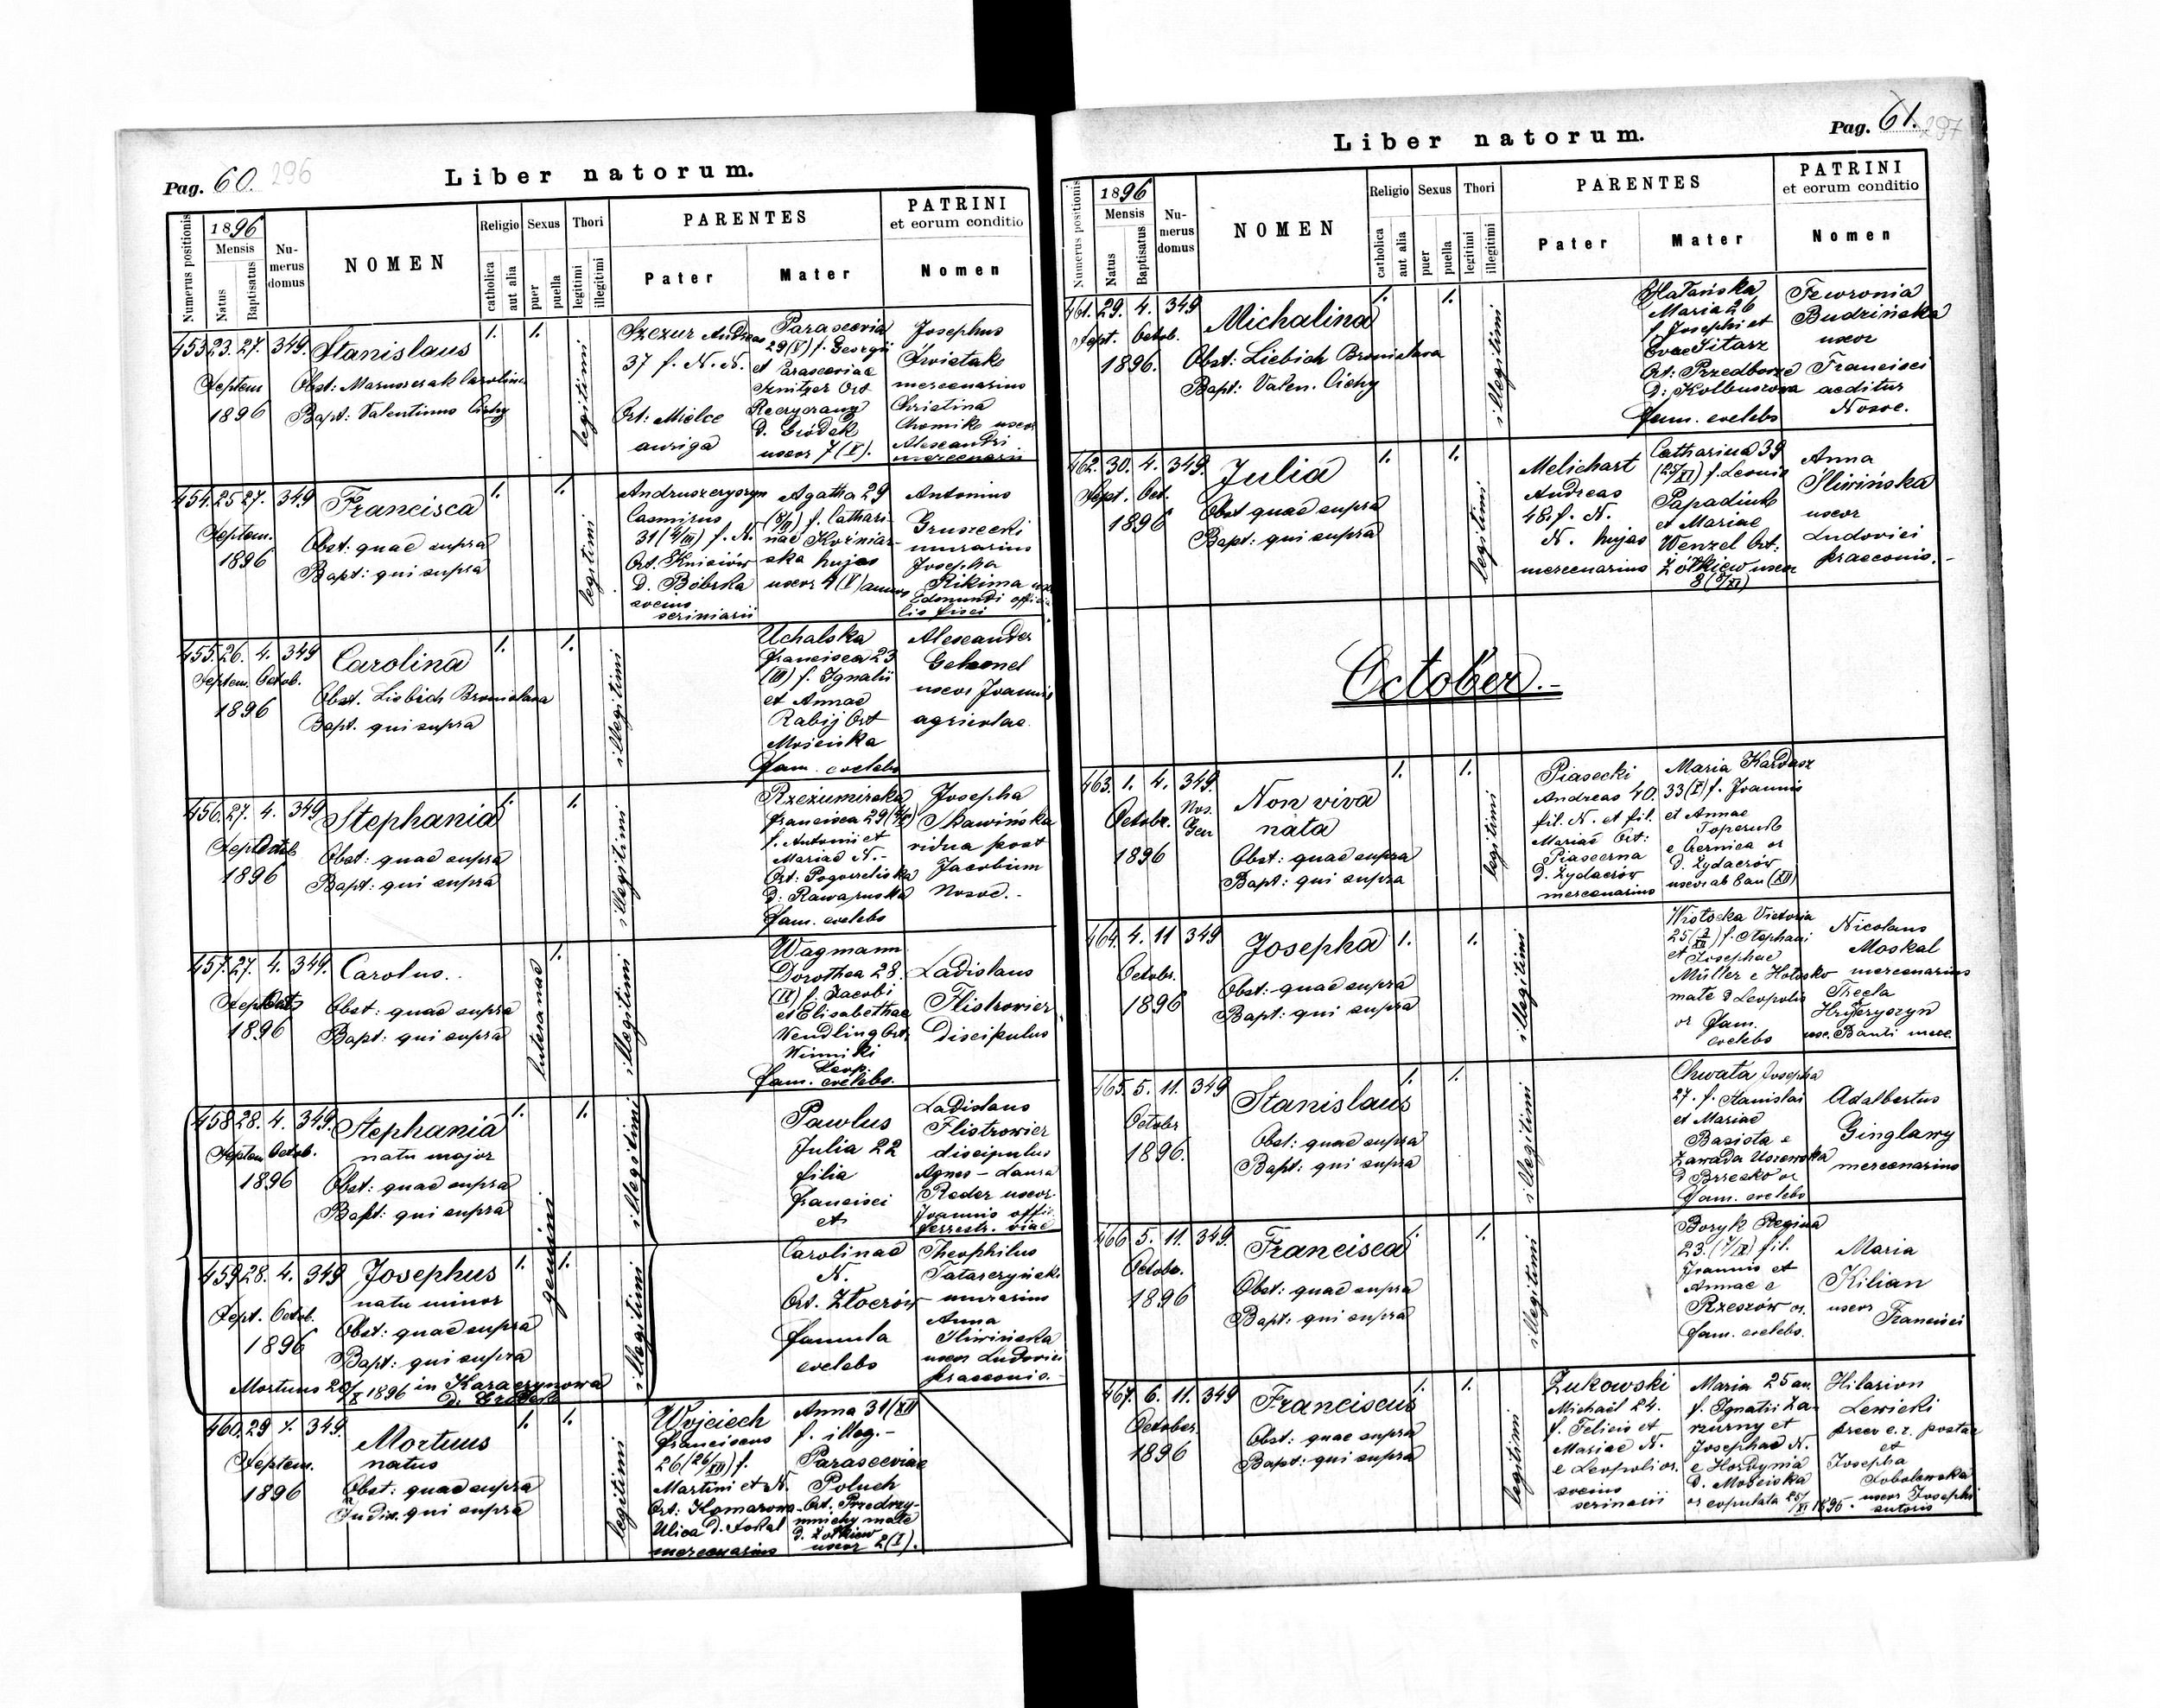 Pag. 60. 296
Liber natorum.
Numerus positionis
1896
Mensis
Natus
Baptisatus
Numerus domus
NOMEN
Religio
catholica
aut alia
Sexus
puer
puella
Thori
legitimi
illegitimi
PARENTES
Pater
Mater
PATRINI
et eorum conditio
Nomen
453 23. 27. 349. Stanislaus 1. 1.
Septem
1896
Bapt: Valentinus Cichy
legitimi
Szczur Andreas
37 f. N. N.
Ort: Mielce
auriga
Parascevia
29 (V) f. Georgii
et Parasceviae
D. Gródek
uxor 7 (V).
Josephus
mercenarius
Christina
Chomik uxor
Alexandri
mercenarii
454. 25 27. 349 Francisca 1. 1.
Septem.
1896
Obst: quae supra
Bapt: qui supra
legitimi
Casimirus
31 f. N.
D. Bóbrka
socius
scriniarii
Agatha 29
f. Cathari-
nae Koźniar-
ska hujas
uxor 4 (V) annos
Antonius
Gruszecki
murarius
Josepha
Rikima
Edmundi offici
lis fisci
455. 26. 4. 349 Carolina 1. 1.
Septem. Octob.
1896
Obst. Liebich Bronislava
Bapt. qui supra
illegitimi
Uchalska
Francisca 23
(III) f. Ignatii
et Annae
Rabij Ort
Mościska
fam. coelebs
Alexander
uxor Joannis
agricolae
456. 27. 4. 349 Stephania 1. 1.
Sept Octob
1896
Obst: quae supra
Bapt: qui supra
illegitimi
Francisca 29
f. Antonii et
Mariae N.-
D: Rawaruska
fam. coelebs
Josepha
Skawińska
vidua post
Jacobum
Nosoc.-
457. 27. 4. 349. Carolus.. 1.
Sept Oct
1896
Obst: quae supra
Bapt: qui supra
luteranae
illegitimi
Wagmann
Dorothea 28.
(IX) f. Jacobi
et Elisabethae
Wendling Ort.
Winniki
Leop.
fam. coelebs.
Ladislaus
Flistrowicz
Discipulus
458 28. 4. 349. Stephania 1. 1.
Septem Octob.
1896
natu major
Obst: quae supra
Bapt: qui supra
gemini
illegitimi
Pawlus
Julia 22
filia
Francisci
et
Ladislaus
Flistrowicz
discipulus
Agnes - Laura
Rader uxor
Joannis offic.
ferrestr. viae
459 28. 4. 349 Josephus 1. 1.
Sept. Octob.
1896
natu minor
Obst: quae supra
Bapt: qui supra
Mortuus 20/X 1896 in Karaczynowa
D. Gródek
illegitimi
Carolinae
N.
Ort. Złoczów
famula
coelebs
Theophilus
murarius
Anna
Śliwińska
uxor Ludovici
praeconis.-
460. 29 349. Mortuus 1. 1.
Septem.
1896
natus
Obst: quae supra
Judic. qui supra
legitimi
Wojciech
Franciscus
26 (26/XII) f.
Martini et N.
Ort: Komarowa-
Ulica D. Sokal
mercenarius
Anna 31 (XII
f. illeg.-
Parasceviae
Poluch
Ort. Przedrzy-
mnichy małe
D. Żółkiew
uxor 2 (I).
Pag. 61. 297
Liber natorum.
Numerus positionis
1896
Mensis
Natus
Baptisatus
Numerus domus
NOMEN
Religio
catholica
aut alia
Sexus
puer
puella
Thori
legitimi
illegitimi
PARENTES
Pater
Mater
PATRINI
et eorum conditio
Nomen
461. 29. 4. 349 Michalina 1. 1.
Sept. Octob.
1896.
Obst: Liebich Bronislava
Bapt: Valen. Cichy
illegitimi
Maria 26
f. Josephi et
Evae Sitarz
D: Kolbuszowa
fam. coelebs
Fewronia
Budzińska
uxor
Francisci
aeditus
Nosoc.
462. 30. 4. 349. Julia 1. 1.
Sept. Oct.
1896
Obst quae supra
Bapt: qui supra
legitimi
Melichart
Andreas
48. f. N.
N. hujas
mercenarius
Catharina 39
(25/XI) f. Leonis
Papadiuk
et Mariae
Wenzel Ort:
Żółkiew uxor
8 (8/XI)
Anna
Śliwińska
uxor
Ludovici
praeconis.-
October.-
463. 1. 4. 349. Non viva 1. 1.
Octobr. Nos. Gen
1896
nata
Obst: quae supra
Bapt: qui supra
legitimi
Piasecki
Andreas 40.
fil. N. et fil.
Mariae Ort:
Piaseczna
D. Żydaczów
mercenarius
Maria Kardasz
33 (X) f. Joannis
et Annae
e Czernica or
D. Żydaczów
uxor ab 8 an (XII)
464. 4. 11 349 Josepha 1. 1.
Octobr.
1896
Obst: quae supra
Bapt: qui supra
illegitimi
Victoria
25 f. Stephani
et Josephae
Müller e Hołosko
małe D Leopolis
or fam.
coelebs
Nicolaus
Moskal
mercenarius
Thecla
465. 5. 11. 349 Stanislaus 1. 1.
October
1896.
Obst: quae supra
Bapt: qui supra
illegitimi
Chwała Josepha
27. f. Stanislai
et Mariae
Basista e
Zawada Uszewska
D Brzesko or
fam. coelebs
Adalbertus
Ginglawy
mercenarius
466 5. 11. 349. Francisca 1. 1.
Octobr.
1896
Obst: quae supra
Bapt. qui supra
illegitimi
Boryk Regina
23. fil.
Joannis et
Annae e
Rzeszów or.
fam. coelebs.
Maria
Kilian
uxor
Francisci
467. 6. 11. 349 Franciscus 1. 1.
October
1896
Obst: quae supra
Bapt: qui supra
legitimi
Żukowski
Michaël 24.
f. Felicis et
Mariae N.
e Leopoli or.
socius
scrinarii
Maria 25 an.
f. Ignatii Za-
rzurny et
Josephae N.
e Hordynia
D. Mościska
or copulata 25/XI 1895.
Hilarion
Lewicki
praeco c. r. postae
et
Josepha
Sobolewska
uxor Josephi
sutoris